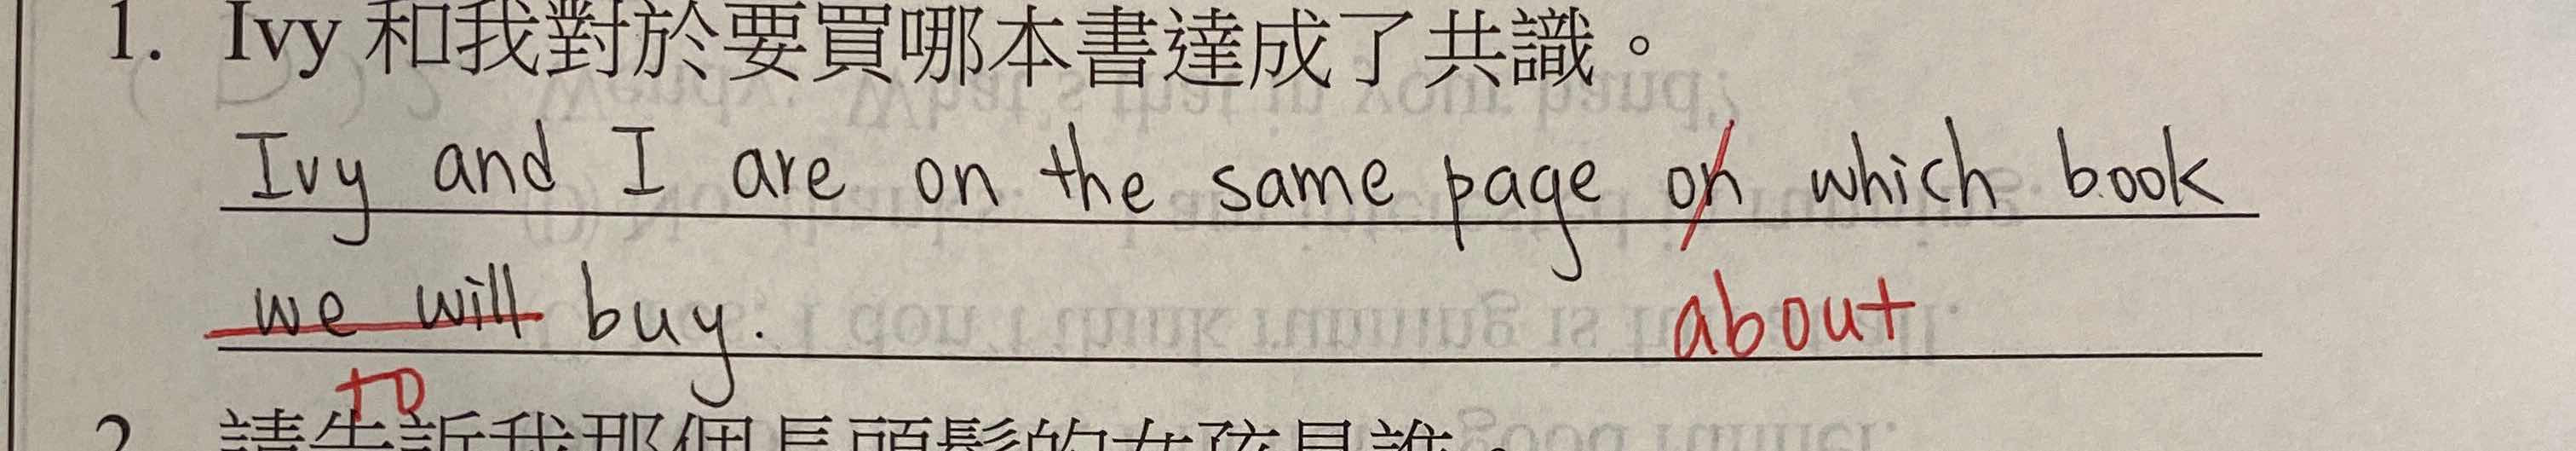 1. Ivy 和我對於要買哪本書達成了共識。
Ivy and I are on the same page on which book
we will buy.
about
to
2. 請告訴我那個長頭髮的女孩是誰。